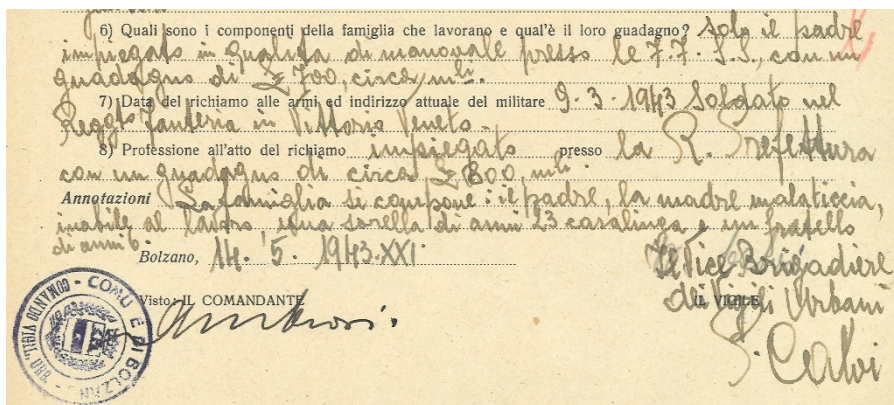 6) Quali sono i componenti della famiglia che lavorano e qual'è il loro guadagno? solo il padre
impiegato in qualità di manovale presso le F.F. S.S., con un
guadagno di £ 700, circa, m/li.
7) Data del richiamo alle armi ed indirizzo attuale del militare 9-3-1943 Soldato nel
Regg/to Fanteria in Vittorio Veneto.
8) Professione all'atto del richiamo impiegato presso la R. Prefettura
con un guadagno di circa £ 800, m/li.
Annotazioni La famiglia si compone: il padre, la madre malaticcia,
inabile al lavoro, una sorella di anni 23 casalinga e un fratello
di anni 6.
Bolzano, 14. 5. 1943.XXI.
Il Vice Brigadiere
Visto: IL COMANDANTE
dei Vigili Urbani
IL VIGILE
COMUNE DI BOLZANO
COMANDO VIGILI URB.